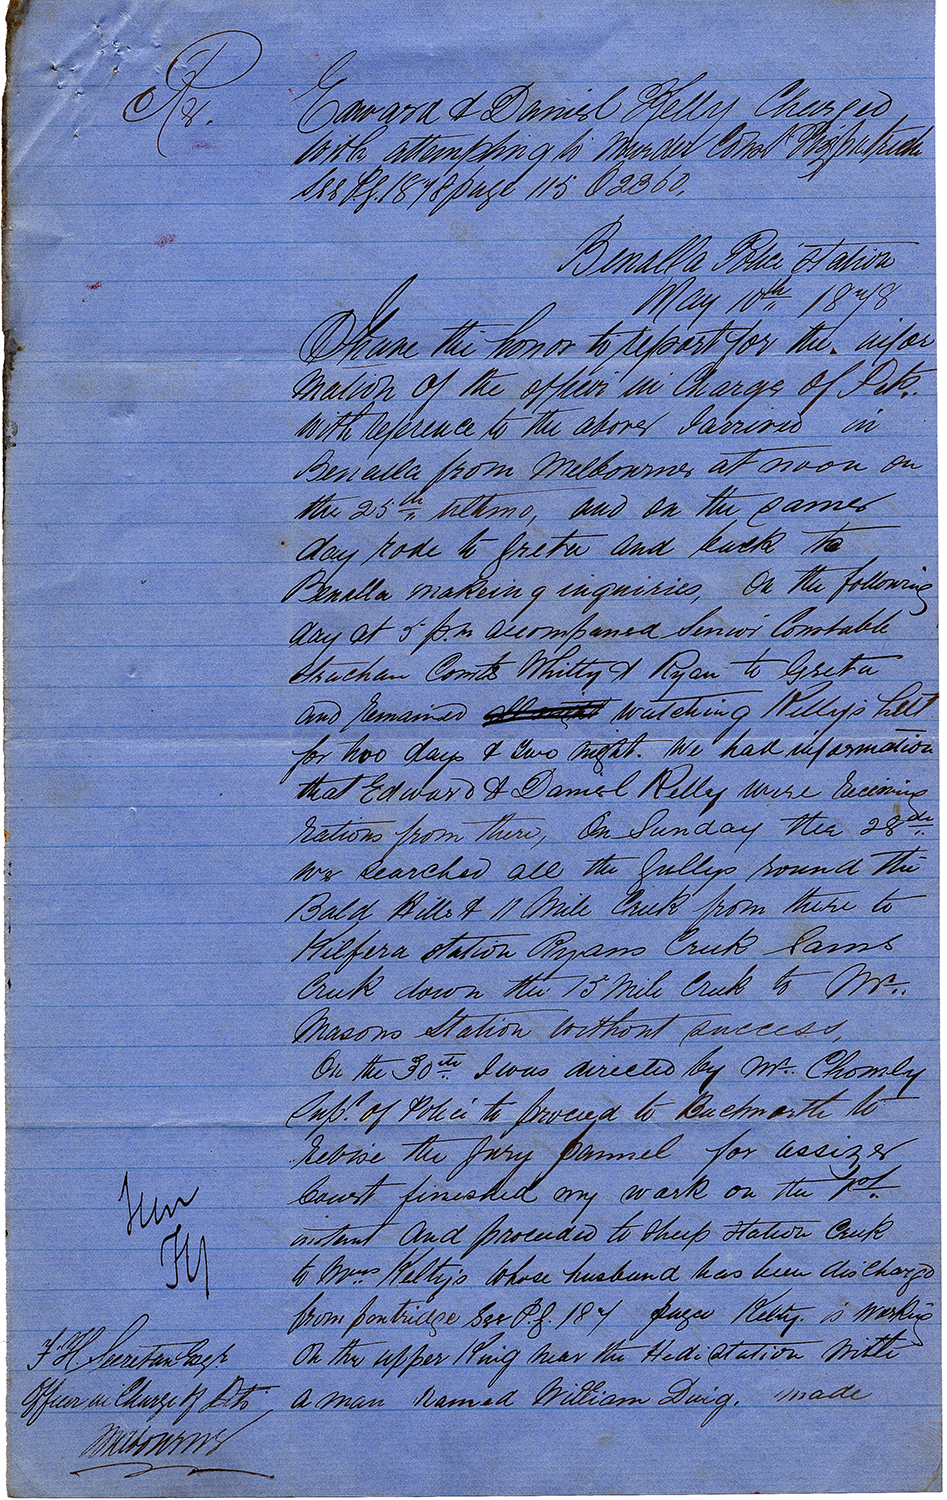 Re.
Edward & Daniel Kelly Charged
with attempting to murder Const Fitzpatrick
See P.G. 1878 page 115 O2360.
Benalla Police Station
May 10th 1878
I have the honor to report for the infor
mation of the officer in Charge of Dets.
with reference to the above I arrived in
Benalla from Melbourne at noon on
the 25th ultimo, and on the same
day rode to Greta and back to
Benalla making inquiries, On the following
day at 5 pm accompaned Senior Constable
Strachan Consts Whitty & Ryan to Greta
and remained watching Kellys hut
for two days & two night. We had information
that Edward & Daniel Kelly were receiving
rations from there, On Sunday the 28th
we searched all the Gullys round the
Bald Hills & 11 Mile Creek from there to
Kilfera Station Ryans Creek Sams
Creek down the 15 Mile Creek to Mr.
Masons Station without success,
On the 30th I was directed by Mr. Chomly
Supt. of Police to proceed to Beechworth to
revise the Jury pannel for assizes
Court finished my work on the 1st
instant and proceeded to Sheep Station Creek
to Mrs Keltys whose husband has been discharged
from pentridge See P.G. 187 page Kelty. is working
On the upper King near the Hedi Station with
a man named William Duig. made
F H Secretan Esqr
Officer in Charge of Dets
Melbourne